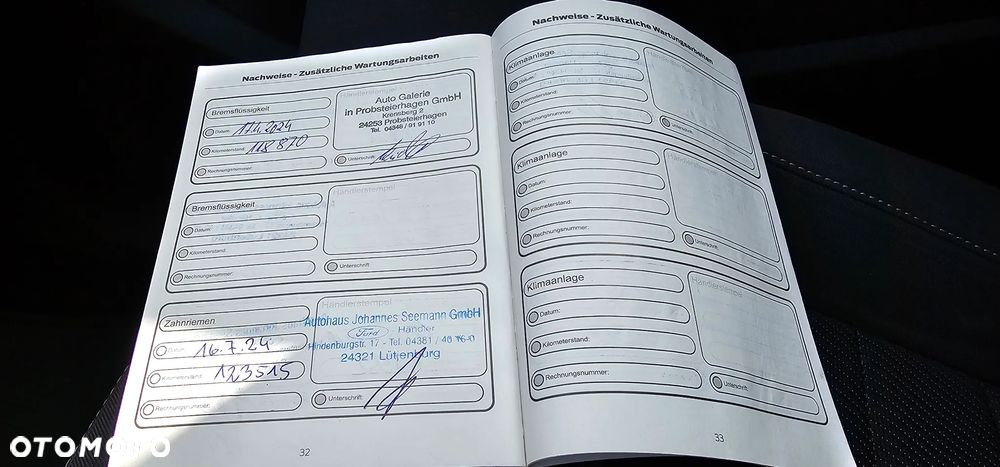 Nachweise - Zusätzliche Wartungsarbeiten
Bremsflüssigkeit
Datum: 17.4.2024
Kilometerstand: 118 870
Rechnungsnummer:
Händlerstempel
Auto Galerie
in Probsteierhagen GmbH
Krensberg 2
24253 Probsteierhagen
Tel. 04348 / 91 91 10
Unterschrift:
Bremsflüssigkeit
Datum:
Kilometerstand:
Rechnungsnummer:
Händlerstempel
Unterschrift:
Zahnriemen
Datum: 16.7.24
Kilometerstand: 123515
Rechnungsnummer:
Händlerstempel
Autohaus Johannes Seemann GmbH
Ford - Händler
Hindenburgstr. 17 - Tel. 04381 / 40 16-0
24321 Lütjenburg
Unterschrift:
32
Nachweise - Zusätzliche Wartungsarbeiten
Klimaanlage
Datum:
Kilometerstand:
Rechnungsnummer:
Händlerstempel
Unterschrift:
Klimaanlage
Datum:
Kilometerstand:
Rechnungsnummer:
Händlerstempel
Unterschrift:
Klimaanlage
Datum:
Kilometerstand:
Rechnungsnummer:
Händlerstempel
Unterschrift:
33
OTOMOTO